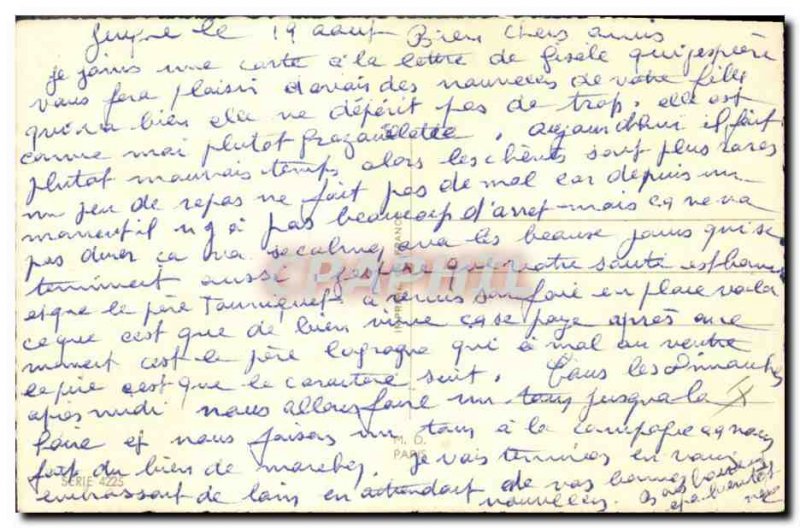 le 19 aout Biens chers amis
je joins une carte à la lettre de Gisele qui j'espère
vous fera plaisir d'avoir des nouvelles de votre fille
qui va bien elle ne dépérit pas de trop. elle est
comme moi plutot . aujourd'hui il fait
plutot mauvais temps alors les sont plus rares
un peu de repas ne fait pas de mal car depuis un
moment il n y a pas beaucoup d'arret mais ca ne va
pas durer ca va se calmer les beause jours qui se
terminent aussi j'espère que votre santé est bonne
et que le père à remis son foie en place voila
ce que c'est que de bien vivre ca se paye après a ce
moment c'est le père qui à mal au ventre
le pire c'est que le caractère suit. Tous les Dimanches
après midi nous allons faire un tour jusqu a la
Loire et nous faisons un tour à la campagne ca nous
fait du bien de marcher. je vais terminer en vous
embrassant de loin en attendant de vos bonnes
nouvelles. Bons baisers
M. O.
PARIS
SERIE 4225
CPAPHIL